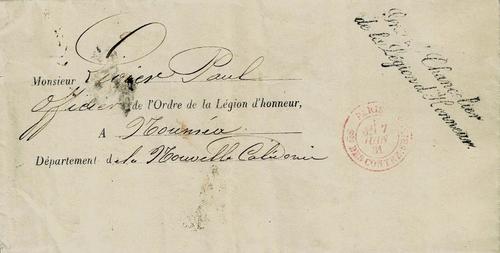 Monsieur Paul
Officier de l'Ordre de la Légion d'honneur,
A Nouméa
Département de la Nouvelle Calédonie
Gnd Chancelier
de la Légion d'Honneur.
PARIS
7
JUIN